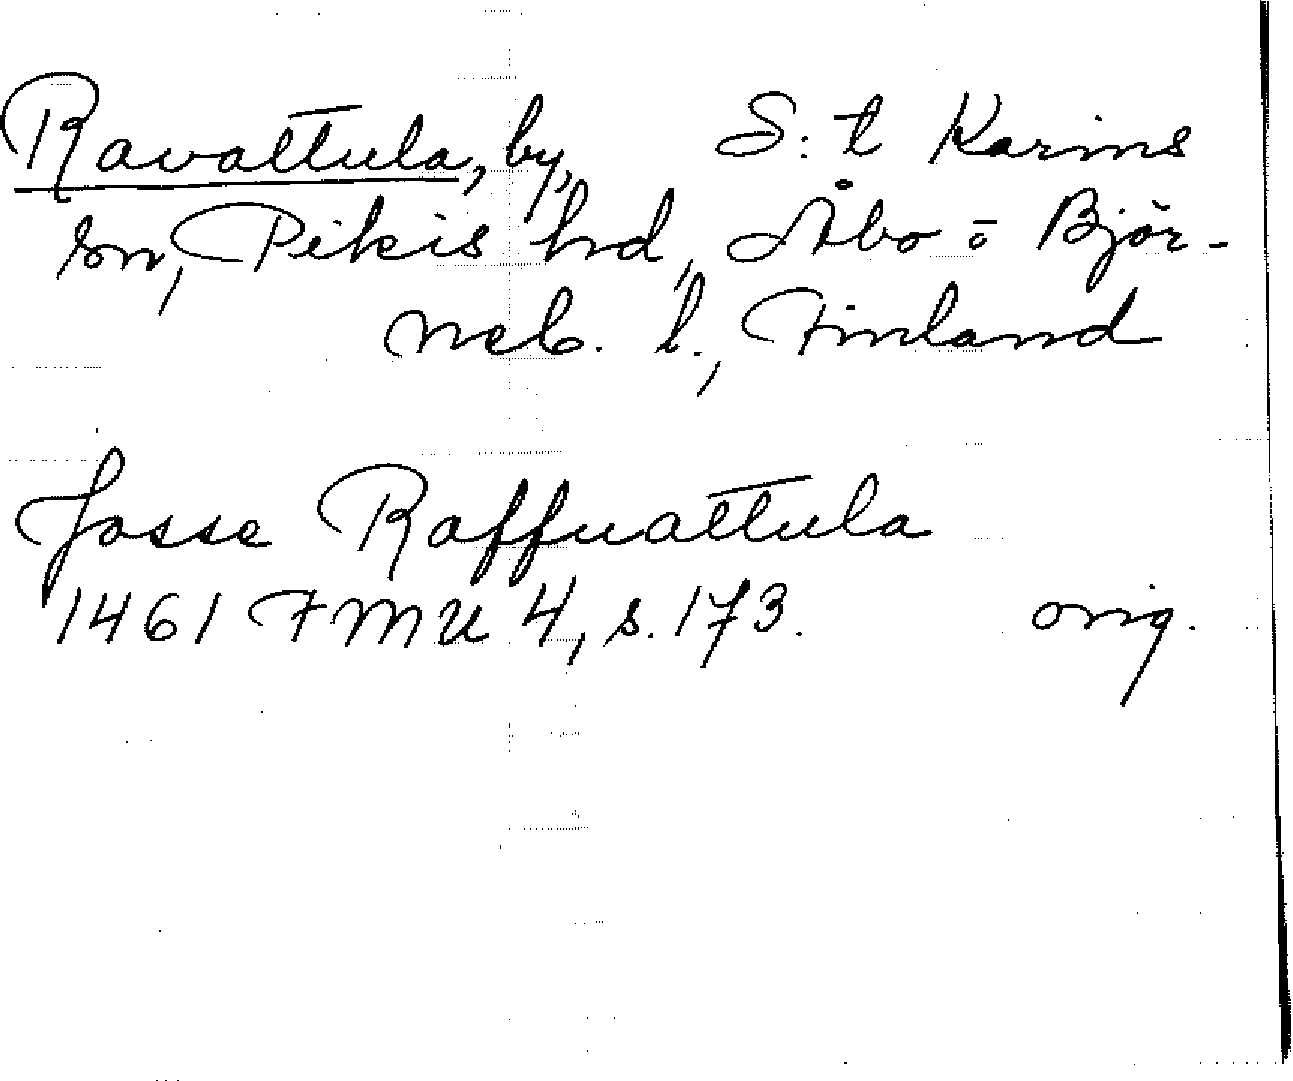 Ravattula, by, S:t Karins
sn, Pikis hrd, Åbo o Björ-
neb. l., Finland
Josse Raffuattula
1461 FMU 4, s. 173. orig.